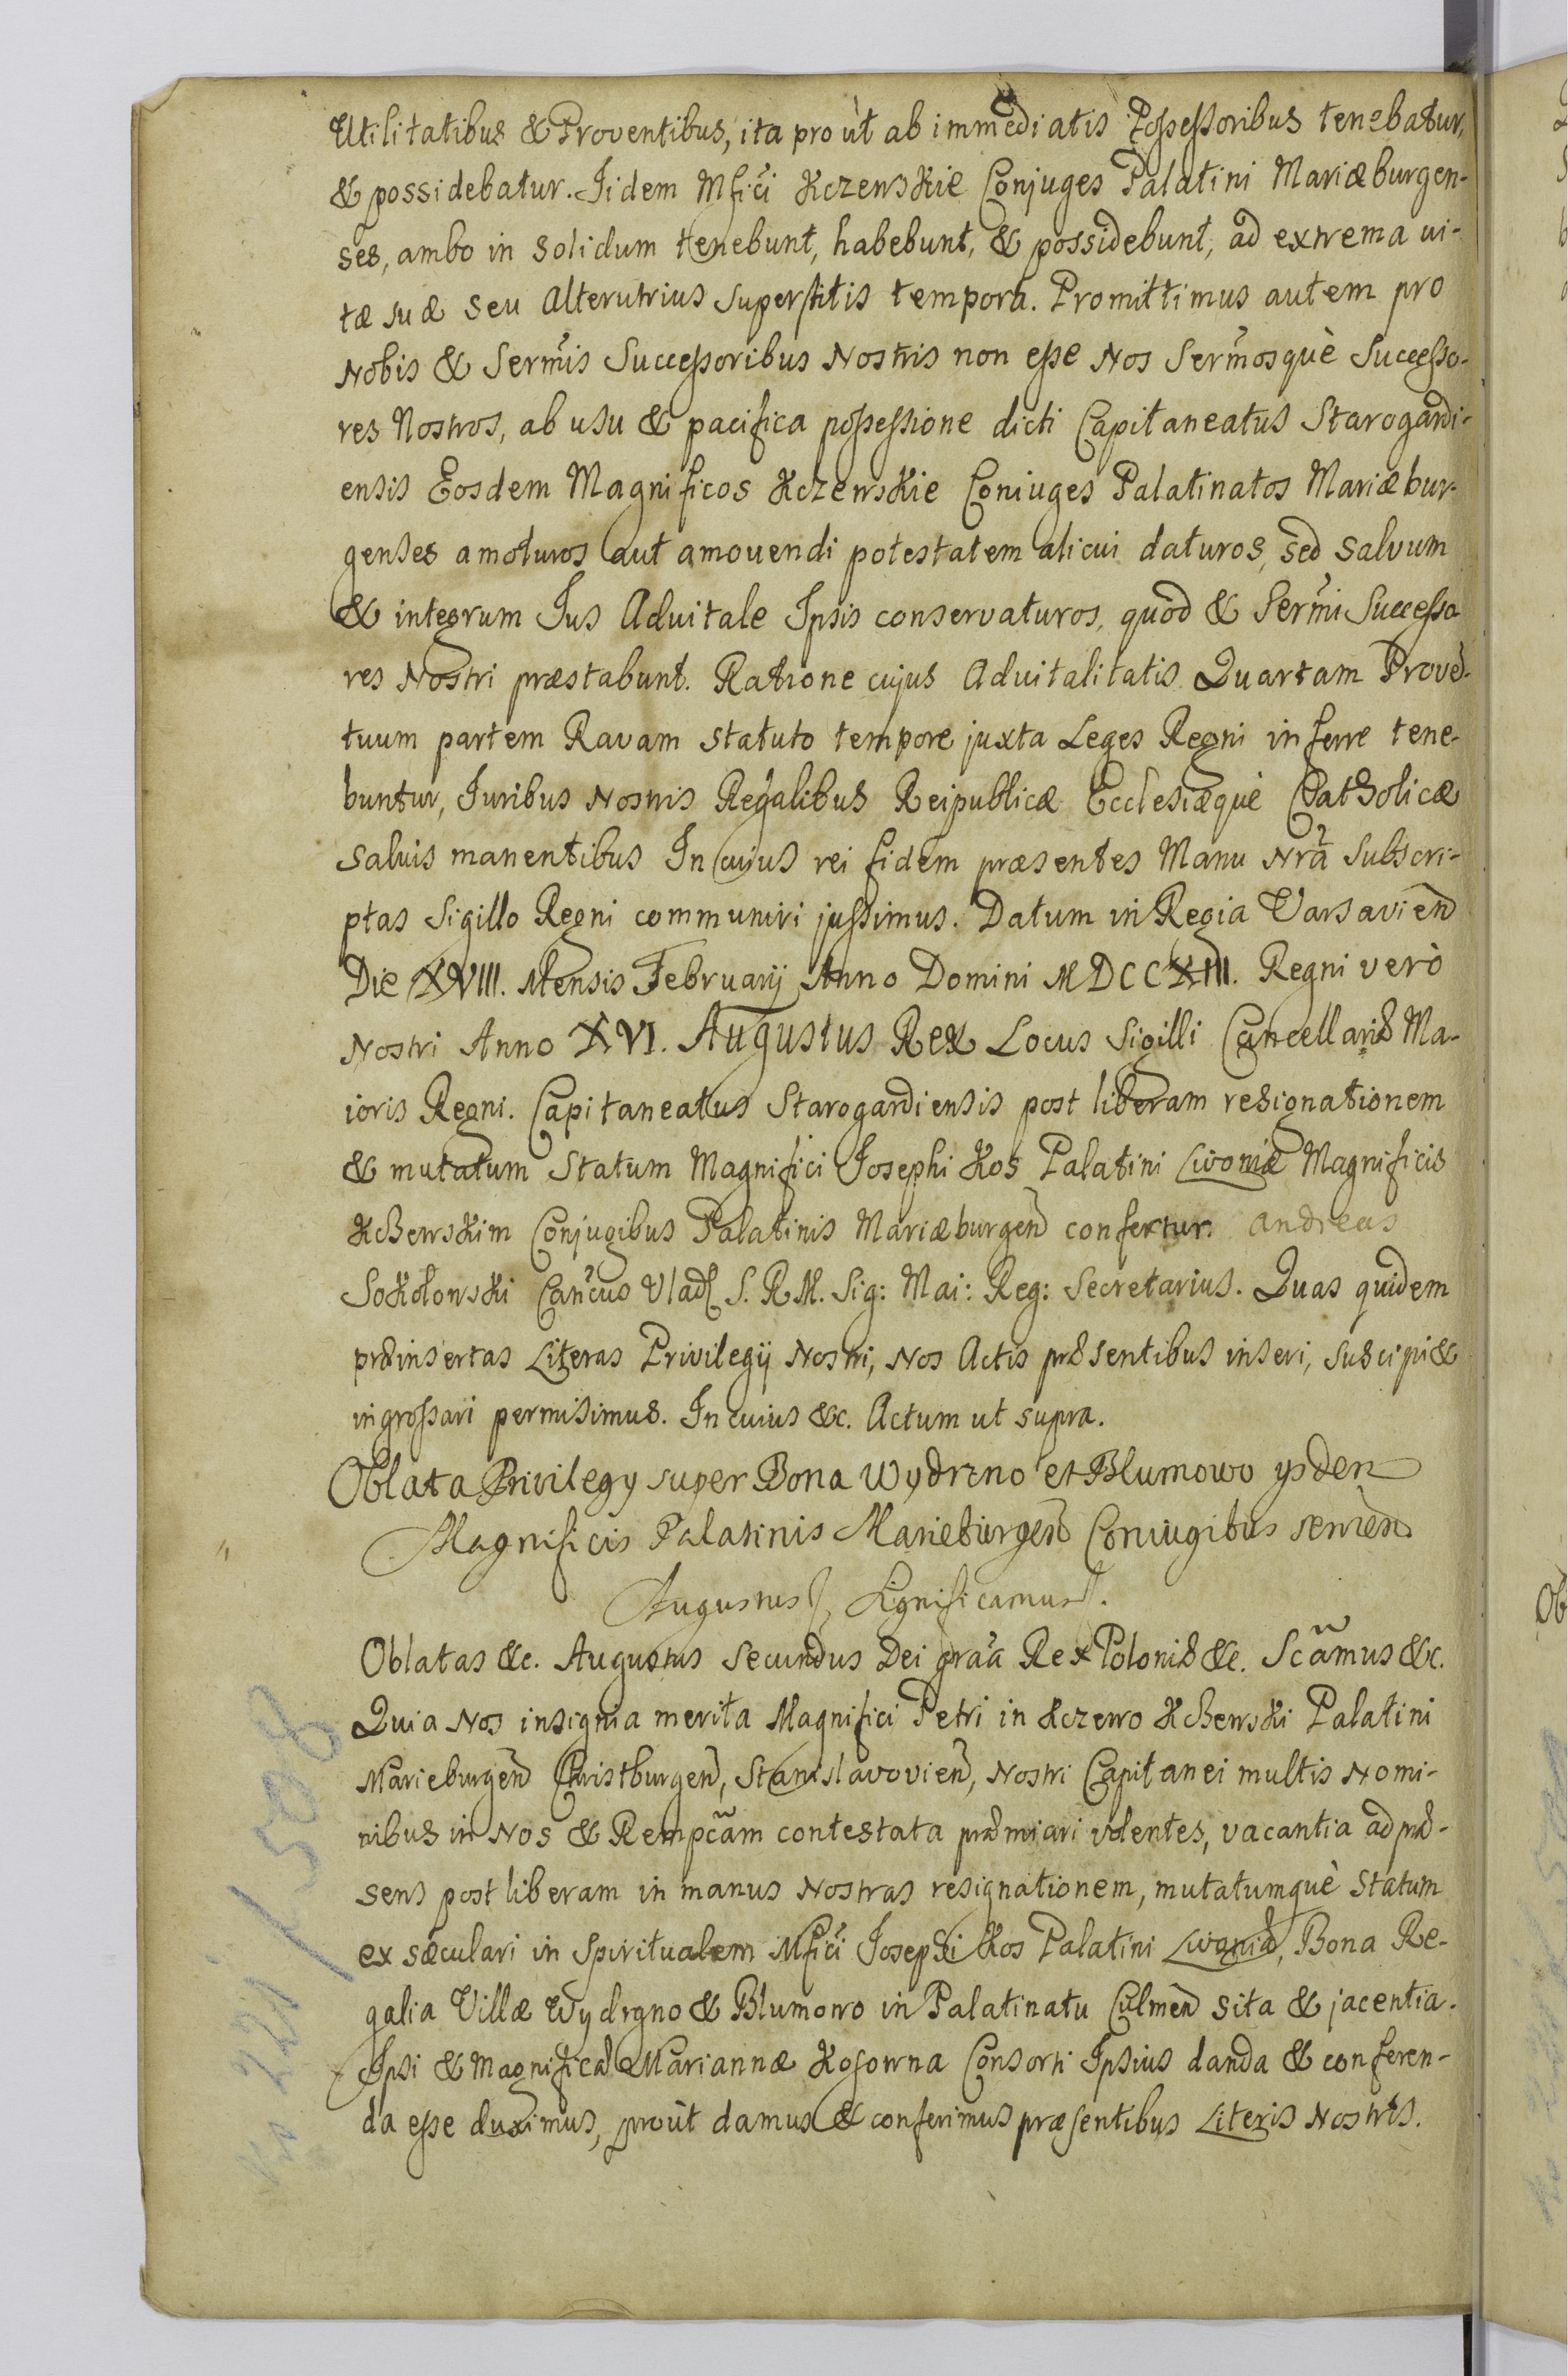 Utilitatibus & Proventibus, ita pro ùt ab immediatis Possessoribus tenebatur,
& possidebatur. Iidem Mfici Kczewskie Conjuges Palatini Mariæburgen-
ses, ambo in solidum tenebunt, habebunt, & possidebunt, ad extrema vi-
tæ suæ seu Alterutrius superstitis tempora. Promittimus autem pro
Nobis & Sermis Successoribus Nostris non esse Nos Sermosquè Successo-
res Nostros, ab usu & pacifica possessione dicti Capitaneatus Starogardi-
ensis Eosdem Magnificos Kczewskie Coniuges Palatinatos Mariæbur-
genses amoturos aut amovendi potestatem alicui daturos, sed salvum
& integrum Ius Advitale Ipsis conservaturos, quod & Sermi Successo
res Nostri præstabunt. Ratione cujus Advitalitatis Quartam Prove-
tuum partem Ravam statuto tempore juxta Leges Regni inferre tene-
buntur, Iuribus Nostris Regalibus Reipublicæ Ecclesiæquè Catholicæ
salvis manentibus In cujus rei fidem præsentes Manu Nrã subscri-
ptas Sigillo Regni communiri jussimus. Datum in Regia Varsavien
Die XVIII. Mensis Februarij Anno Domini MDCCXIII. Regni verò
Nostri Anno XVI. Augustus Rex Locus Sigilli Cancellariæ Ma-
ioris Regni. Capitaneatus Starogardiensis post liberam resignationem
& mutatum Statum Magnifici Iosephi Kos Palatini Livoniæ Magnificis
Kczewskim Conjugibus Palatinis Mariæburgen confertur. Andreas
Sokołowski Cancus Vlad S. R M. Sig: Mai: Reg: Secretarius. Quas quidem
præinsertas Literas Privilegij Nostri, Nos Actis præsentibus inseri, suscipi &
ingrossari permisimus. In cuius &c. Actum ut supra.
Oblata Privilegy super Bona Wydrzno et Blumowo ysdem
Magnificis Palatinis Marieburgen Coniugibus servien
Augustus, Significamus.
Oblatas &c. Augustus Secundus Dei graã Rex Poloniæ &c. Scãmus &c.
Quia Nos insignia merita Magnifici Petri in Kczewo Kczewski Palatini
Marieburgen Christburgen, Stanislavovien, Nostri Capitanei multis Nomi-
nibus in Nos & Rempcãm contestata præmiari volentes, vacantia ad præ-
sens post liberam in manus Nostras resignationem, mutatumquè Statum
ex sæculari in Spiritualem Mfici Iosephi Kos Palatini Livoniæ, Bona Re-
galia Villæ Wydrgno & Blumowo in Palatinatu Culmen sita & jacentia.
Ipsi & Magnificæ Mariannæ Kosowna Consorti Ipsius danda & conferen-
da esse duximus, proùt damus & conferimus præsentibus Literis Nostris.